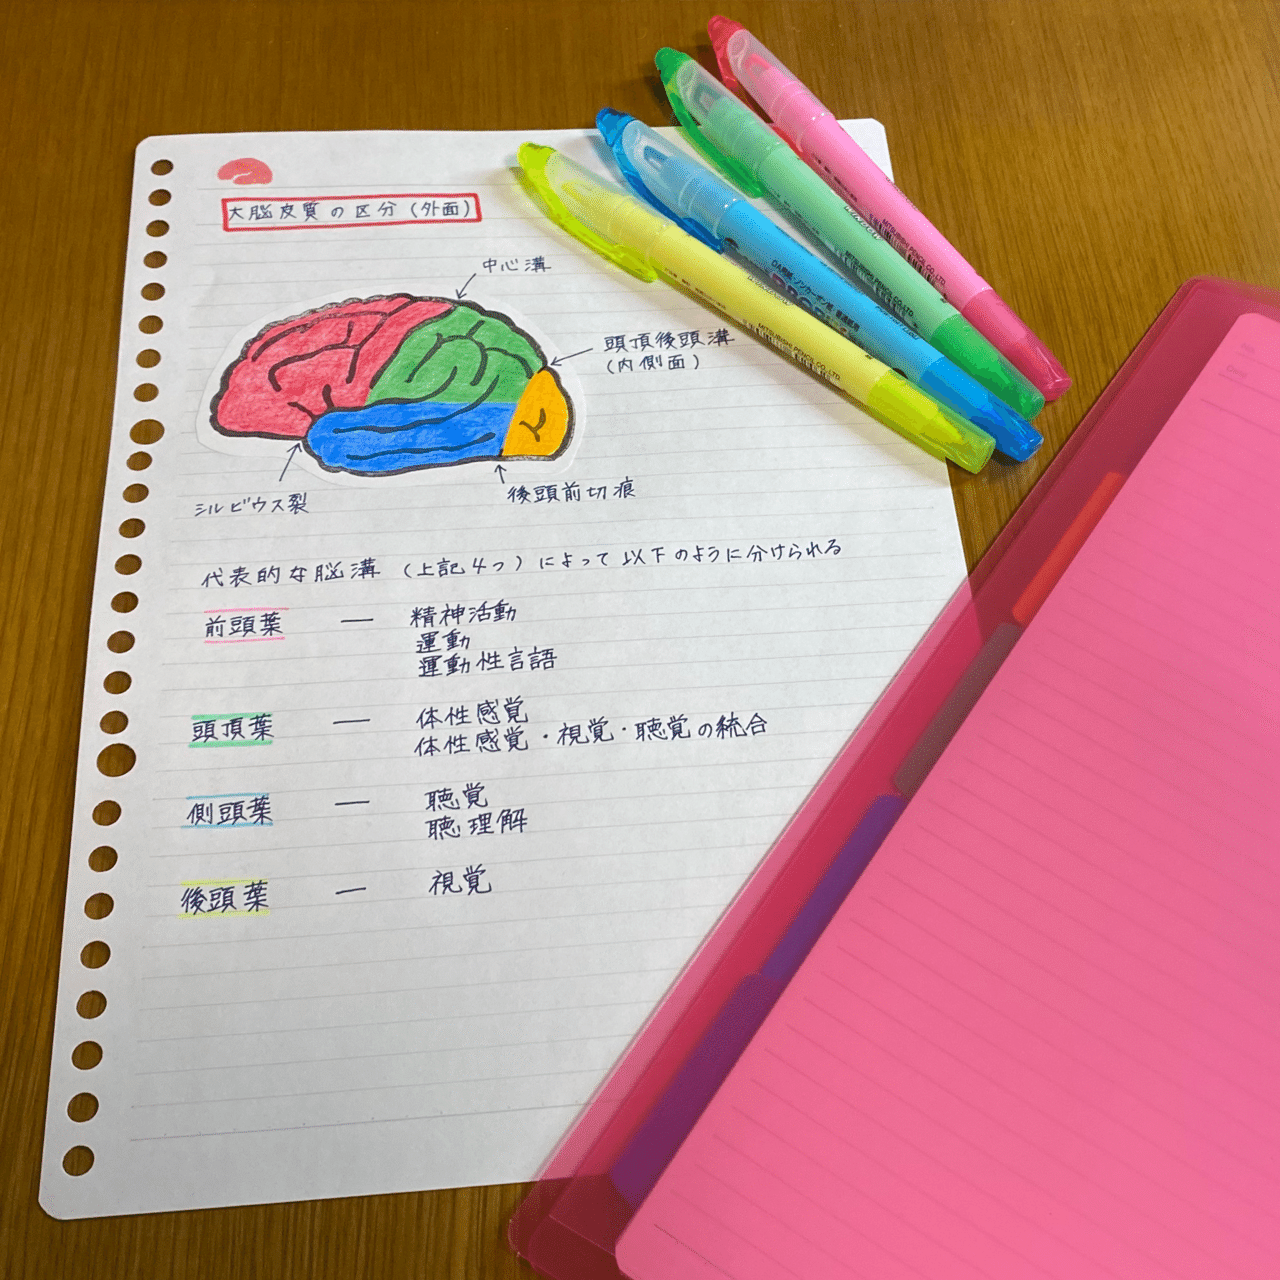 大脳皮質の区分(外面)
中心溝
頭頂後頭溝
(内側面)
シルビウス裂
後頭前切痕
代表的な脳溝(上記4つ)によって以下のように分けられる
前頭葉 — 精神活動
運動
運動性言語
頭頂葉 — 体性感覚
体性感覚・視覚・聴覚の統合
側頭葉 — 聴覚
聴理解
後頭葉 — 視覚
MITSUBISHI PENCIL CO.,LTD.
MITSUBISHI PENCIL CO.,LTD.